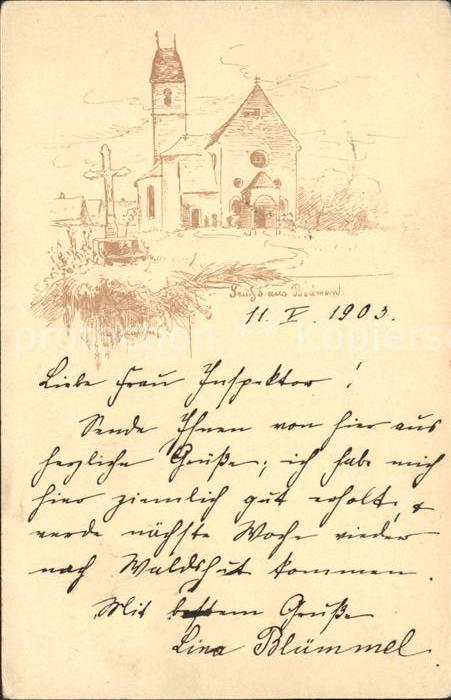 Gruss aus
11. V. 1903.
Liebe Frau Inspektor!
Sende Ihnen von hier aus
herzliche Grüße; ich habe mich
hier ziemlich gut erholt, &
werde nächste Woche wieder
nach Waldshut kommen.
Mit bestem Gruße
Lina Blümmel